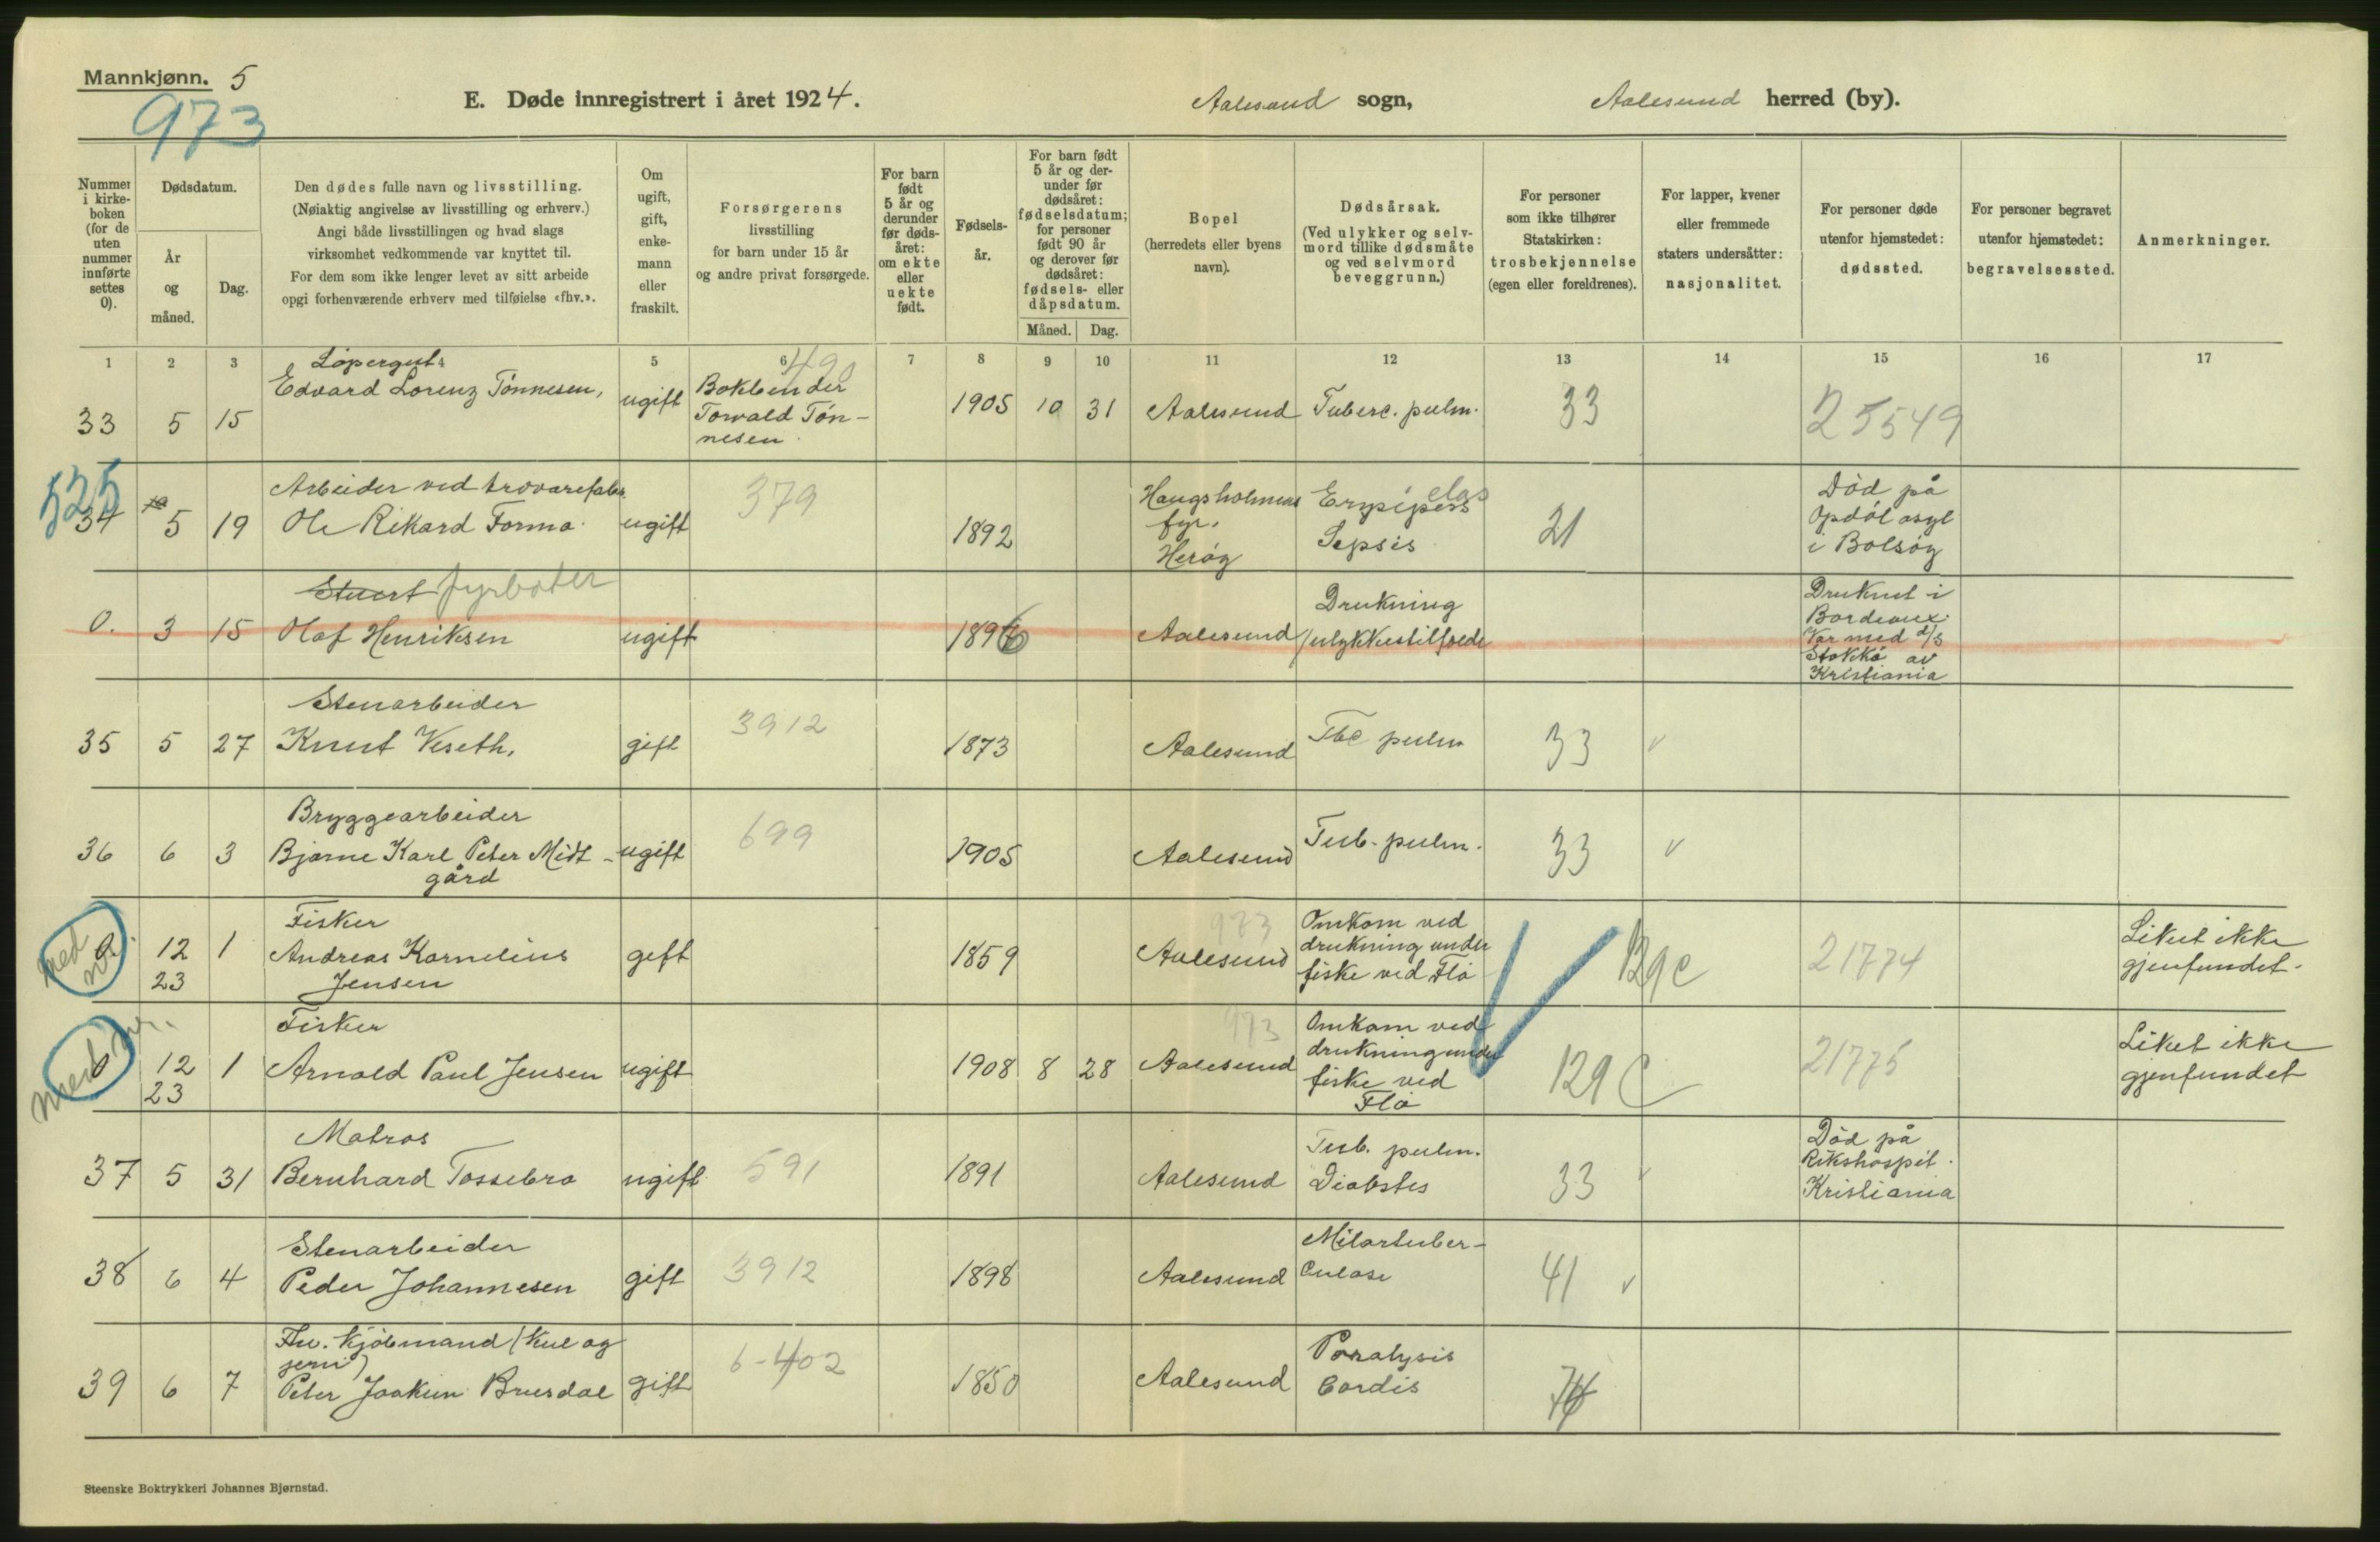 Mannkjønn. 5
973
E. Døde innregistrert i året 1924.
Aalesund sogn,
Aalesund herred (by).
Nummer i kirke-boken (for de uten nummer innførte settes 0).
Dødsdatum.
År og måned.
Dag.
Den dødes fulle navn og livsstilling.
(Nøiaktig angivelse av livsstilling og erhverv.)
Angi både livsstillingen og hvad slags
virksomhet vedkommende var knyttet til.
For dem som ikke lenger levet av sitt arbeide
opgi forhenværende erhverv med tilføielse «fhv.».
Om ugift, gift, enke-mann eller fraskilt.
Forsørgerens
livsstilling
for barn under 15 år
og andre privat forsørgede.
For barn født 5 år og derunder før døds-året: om ekte eller uekte født.
Fødsels-år.
For barn født 5 år og der-under før dødsåret: fødselsdatum; for personer født 90 år og derover før dødsåret: fødsels- eller dåpsdatum.
Måned. Dag.
Bopel
(herredets eller byens
navn).
Dødsårsak.
(Ved ulykker og selv-
mord tillike dødsmåte
og ved selvmord
beveggrunn.)
For personer
som ikke tilhører
Statskirken:
trosbekjennelse
(egen eller foreldrenes).
For lapper, kvener
eller fremmede
staters undersåtter:
nasjonalitet.
For personer døde
utenfor hjemstedet:
dødssted.
For personer begravet
utenfor hjemstedet:
begravelsessted.
Anmerkninger.
1 2 3 4 5 6 7 8 9 10 11 12 13 14 15 16 17
Løpergut
490
33 5 15 Edvard Lorenz Tønnesen, ugift Bokbinder
Torvald Tøn-
nesen
1905 10 31 Aalesund Tuberc. pulm. 33 25549
525
Arbeider ved trovarefabr.
34 5 19 Ole Rikard Formo. ugift 379 1892
Haugsholmens
fyr.
Herøy
Erysipelas
Sepsis
21
Død på
Opdøl asyl
i Bolsøy
Stuert fyrbøter
0. 3 15 Olaf Henriksen ugift 1896 Aalesund
Drukning
/ulykkestilfælde
Druknet i
Bordeaux.
Var med d/s
Stokkø av
Kristiania
Stenarbeider
35 5 27 Knut Veseth, gift 3912 1873 Aalesund Tbc pulm 33 v
Bryggearbeider
36 6 3 Bjarne Karl Peter Midt-
gård
ugift 699 1905 Aalesund Tub. pulm. 33 v
med nr.
Fisker
0. 12 1 Andreas Kornelius
23 Jensen
gift 1859 973 Aalesund
Omkom ved
drukning under
fiske ved Flø
129 C 21774
Liket ikke
gjenfundet.
med nr.
Fisker
0 12 1 Arnold Paul Jensen ugift
23
1908 8 28 973 Aalesund
Omkom ved
drukning under
fiske ved
Flø
129 C 21775
Liket ikke
gjenfundet
Matros
37 5 31 Bernhard Tossebro ugift 591 1891 Aalesund
Tub. pulm.
Diabetes
33 v
Død på
Rikshospit.
Kristiania
Stenarbeider
38 6 4 Peder Johannesen gift 3912 1898 Aalesund
Miliartuber-
culose
41 v
Fhv. kjøbmand (kul og
jern)
39 6 7 Peter Joakim Brusdal gift 6-402 1850 Aalesund
Paralysis
Cordis
Steenske Boktrykkeri Johannes Bjørnstad.